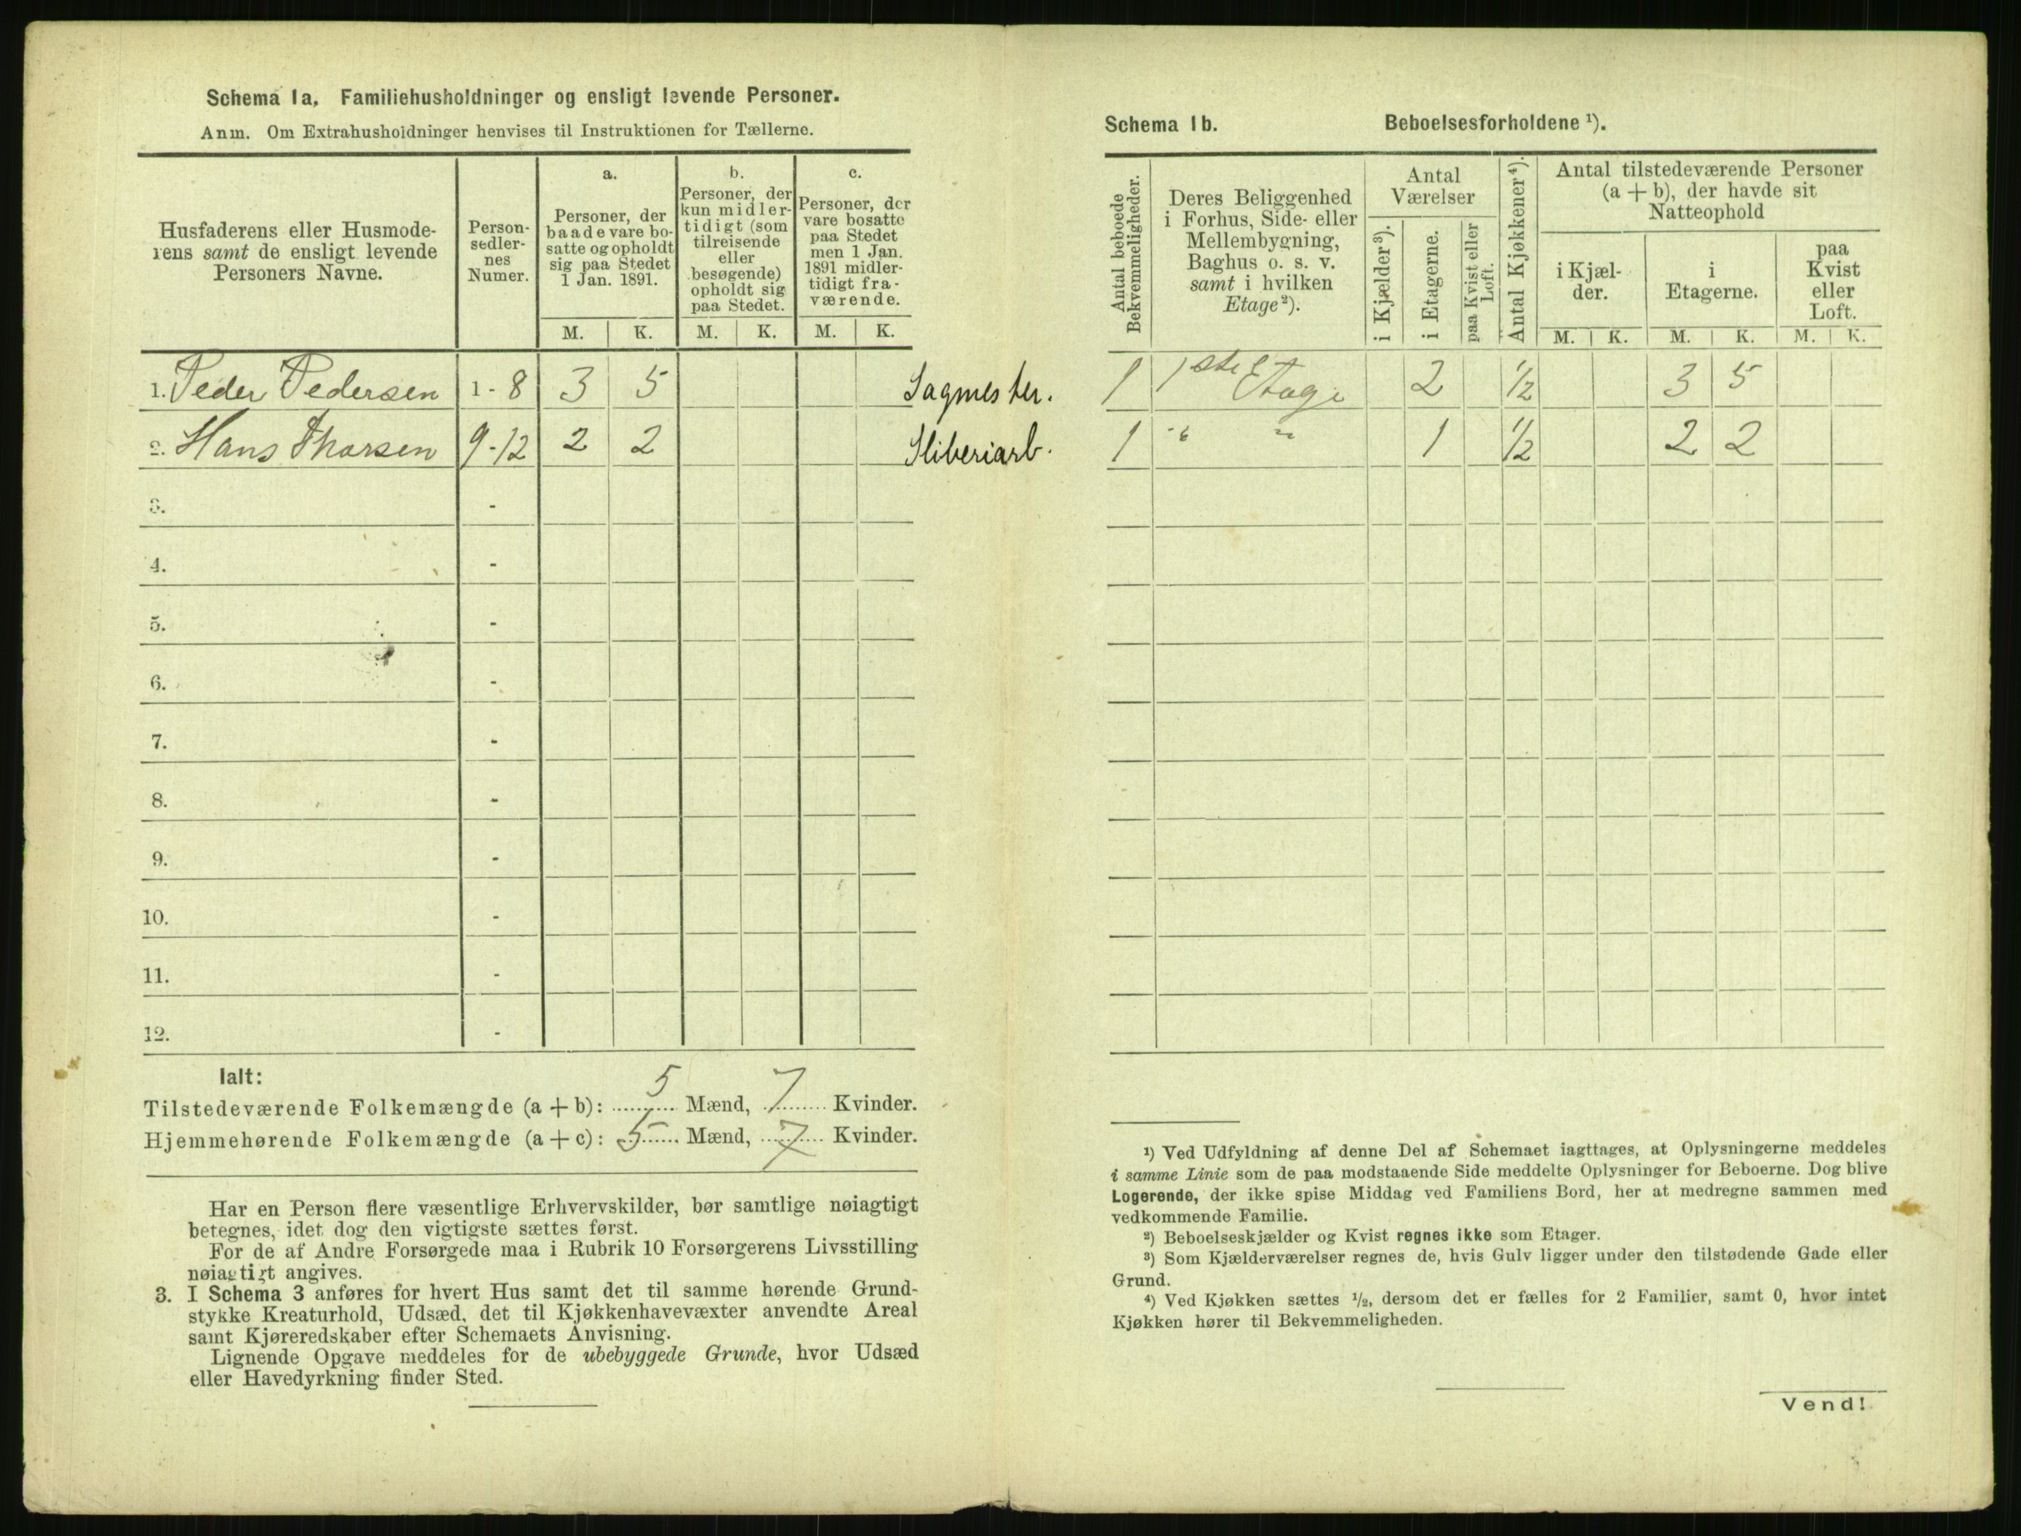 Schema 1a. Familiehusholdninger og ensligt levende Personer.
Anm. Om Extrahusholdninger henvises til Instruktionen for Tællerne.
Husfaderens eller Husmode-
rens samt de ensligt levende
Personers Navne.
Person-
sedler-
nes
Numer.
a.
Personer, der
baade vare bo-
satte og opholdt
sig paa Stedet
1 Jan. 1891.
b.
Personer, der
kun midler-
tidigt (som
tilreisende
eller
besøgende)
opholdt sig
paa Stedet.
c.
Personer, der
vare bosatte
paa Stedet
men 1 Jan.
1891 midler-
tidigt fra-
værende.
M. K. M. K. M. K.
1. Peder Pedersen 1 - 8 3 5 Sagmester.
2. Hans Thorsen 9-12 2 2 Sliberiarb.
3. -
4. -
5. -
6. -
7. -
8. -
9. -
10. -
11. -
12. -
Ialt:
Tilstedeværende Folkemængde (a + b): 5 Mænd, 7 Kvinder.
Hjemmehørende Folkemængde (a + c): 5 Mænd, 7 Kvinder.
Har en Person flere væsentlige Erhvervskilder, bør samtlige nøiagtigt
betegnes, idet dog den vigtigste sættes først.
For de af Andre Forsørgede maa i Rubrik 10 Forsørgerens Livsstilling
nøiagtigt angives.
3. I Schema 3 anføres for hvert Hus samt det til samme hørende Grund-
stykke Kreaturhold, Udsæd, det til Kjøkkenhavevæxter anvendte Areal
samt Kjøreredskaber efter Schemaets Anvisning.
Lignende Opgave meddeles for de ubebyggede Grunde, hvor Udsæd
eller Havedyrkning finder Sted.
Schema 1b. Beboelsesforholdene ¹).
Antal beboede
Bekvemmeligheder.
Deres Beliggenhed
i Forhus, Side- eller
Mellembygning,
Baghus o. s. v.
samt i hvilken
Etage ²).
Antal
Værelser
i Kjælder ³).
i Etagerne.
paa Kvist eller
Loft.
Antal Kjøkkener ⁴).
Antal tilstedeværende Personer
(a + b), der havde sit
Natteophold
i Kjæl-
der.
i
Etagerne.
paa
Kvist
eller
Loft.
M. K. M. K. M. K.
1 1ste Etage 2 1/2 3 5
1 " " 1 1/2 2 2
¹) Ved Udfyldning af denne Del af Schemaet iagttages, at Oplysningerne meddeles
i samme Linie som de paa modstaaende Side meddelte Oplysninger for Beboerne. Dog blive
Logerende, der ikke spise Middag ved Familiens Bord, her at medregne sammen med
vedkommende Familie.
²) Beboelseskjælder og Kvist regnes ikke som Etager.
³) Som Kjælderværelser regnes de, hvis Gulv ligger under den tilstødende Gade eller
Grund.
⁴) Ved Kjøkken sættes ½, dersom det er fælles for 2 Familier, samt 0, hvor intet
Kjøkken hører til Bekvemmeligheden.
Vend!